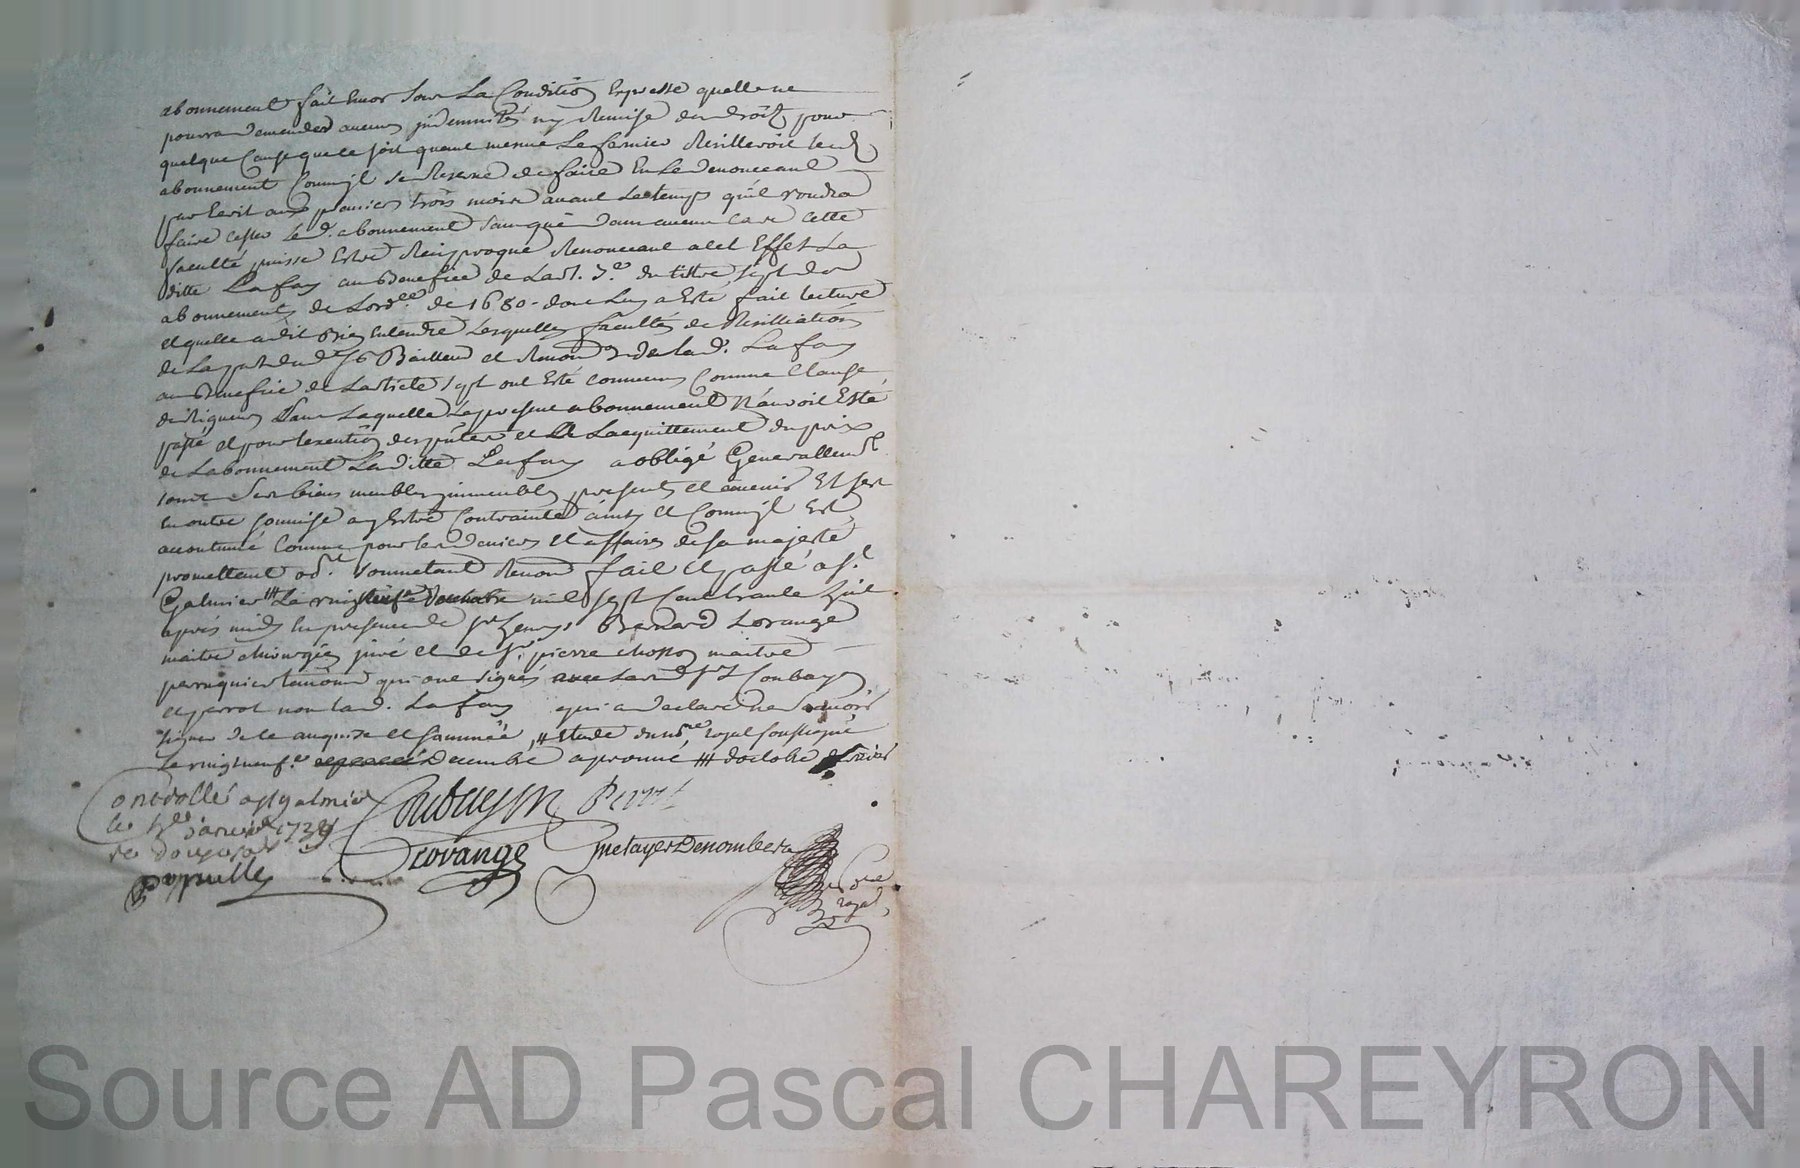 abonnement fait encor sous La Condition Expresse quelle ne
pourra demander aucunes jndemnités ny Remise des droits pour
quelque Cause que ce soit quant mesme Le fermier Resilleroit led
abonnement Comme jl se Reserve de faire En Le denonceant
par Ecrit aux premiers trois mois avant Le temps qu'il voudra
faire cesser Led. abonnement sans que dans aucun Cas cette
faculté puisse Estre Reciproque Renonceant a cet Effet La
ditte Lafay au Benefice de Lart. 7e du tittre sept des
abonnements de Lordce de 1680 - dont Luy a Esté fait lecture
et quelle a dit Bien entendre Lesquelles facultés de Resilliation
de La part du d. Sr Bailleur et Renon de lad. Lafay
au Benefice de Larticle sept ont Esté convenus Comme Clause
de Rigueur Sans Laquelle Le present abonnement N'auroit Esté
passé et pour lexecution des pntes et Lacquittement du prix
de Labonnement Laditte Lafay a obligé Generallemt
tous Ses biens meubles jmmeubles presents et avenir Et sest
en outre soumise a y Estre Contrainte ainsy et Comme jl Est
accoutumé Comme pour les deniers Et affaires de sa majesté
promettant obt. soumettant Renond fait et passé a st
Galmier ## Le mil sept Cent trente huit
apres midy En presence de Sr henry Bernard Lorange
maitre chirurgien juré et de Sr. pierre maitre
perruquier qui ont signés avec Lesd Srs Coubayon
et perrot non lad. Lafay qui a declaré ne Scavoir
signer de ce enquise et sommée # Etude du nre Royal soussigné
Le vingt neufe Decembre aprouvé ## doctobre
Controllé a st galmier
le janvier 1739
Coubayon Perrot
Lorange metayer Denombera
royal